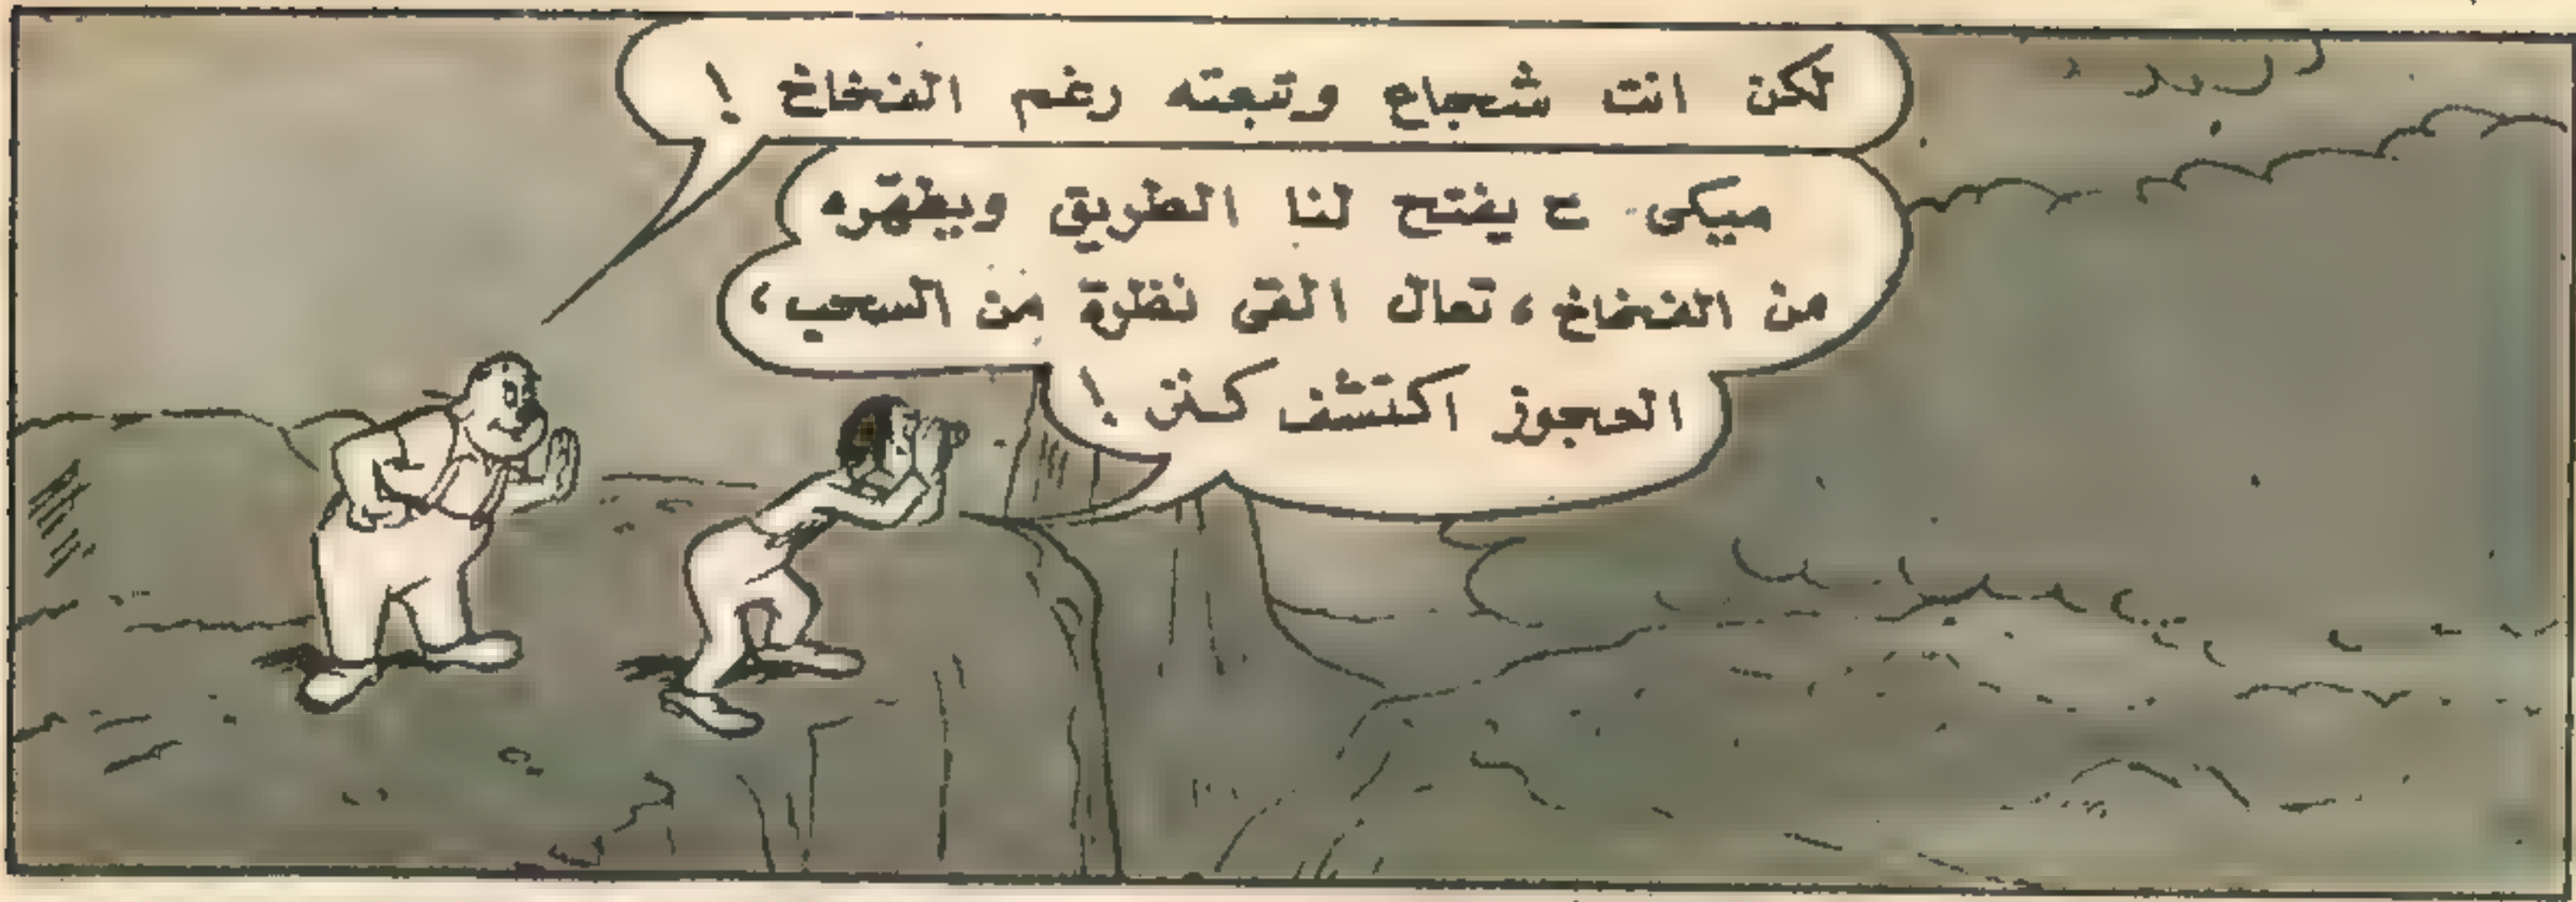 لكن انت شجاع وتبعته رغم الفخاخ !
ميكى ح يفتح لنا الطريق ويطهره
من الفخاخ ، تعال القى نظرة من السحب ،
العجوز اكتشف كنز !